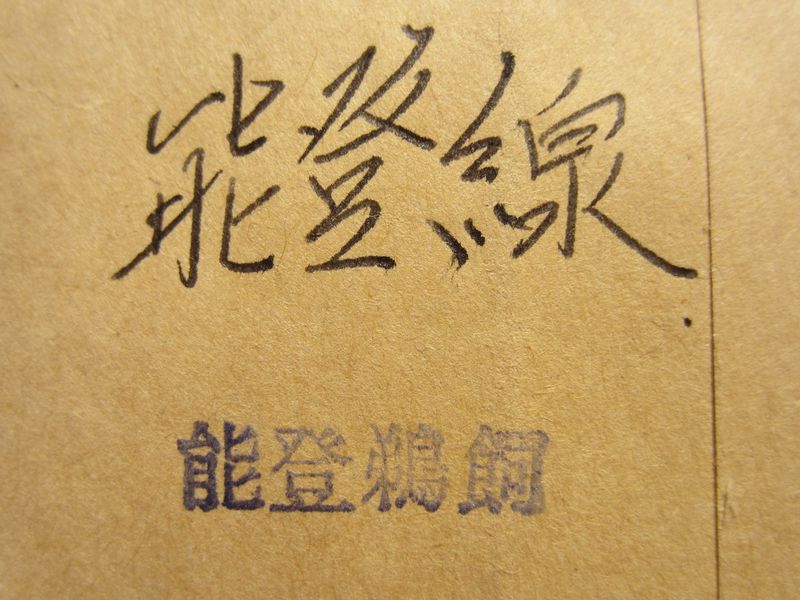 能登線
能登鵜飼